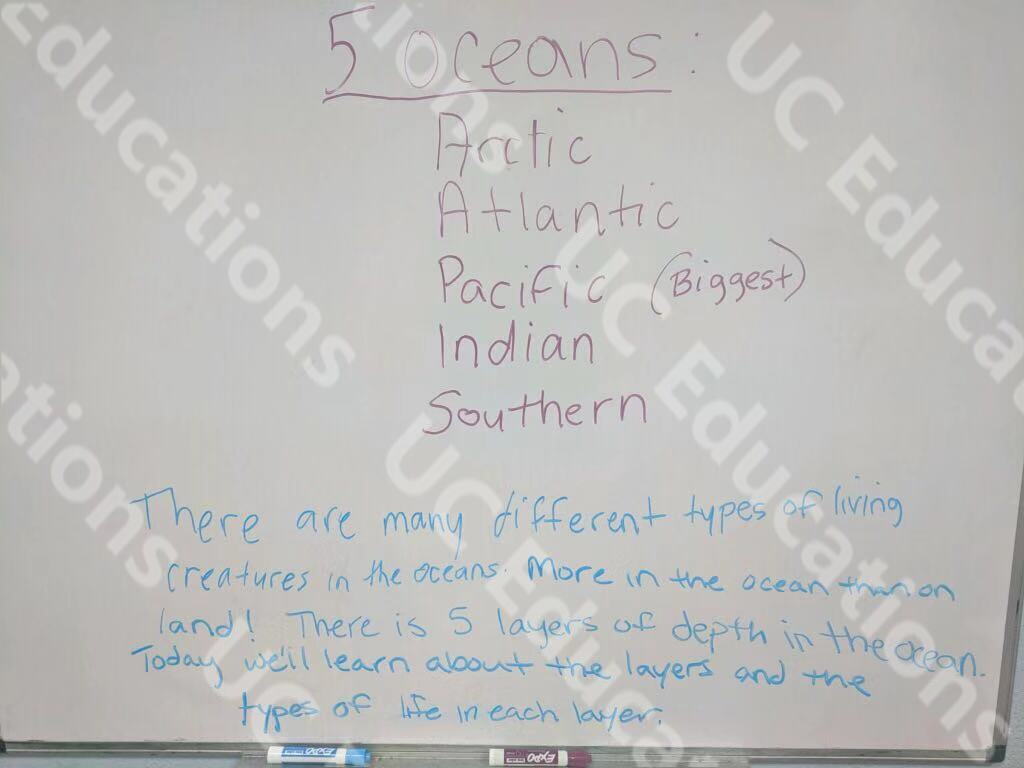 5 oceans:
Arctic
Atlantic
Pacific (Biggest)
Indian
Southern
There are many different types of living
creatures in the oceans. More in the ocean than on
land! There is 5 layers of depth in the ocean.
Today we'll learn about the layers and the
types of life in each layer.
EXPO
EXPO
UC Educations
UC Educations
UC Educations
UC Educations